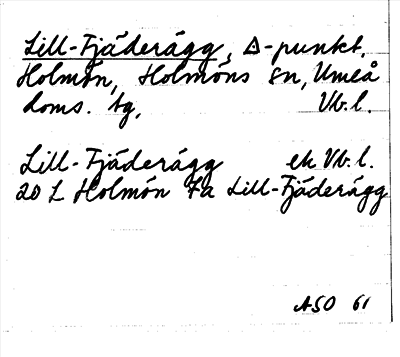 Lill-Fjäderägg, Δ-punkt,
Holmön, Holmöns sn, Umeå
doms. tg, Vb.l.
Lill-Fjäderägg ek Vb.l.
20 L Holmön 7a Lill-Fjäderägg
ASO 61